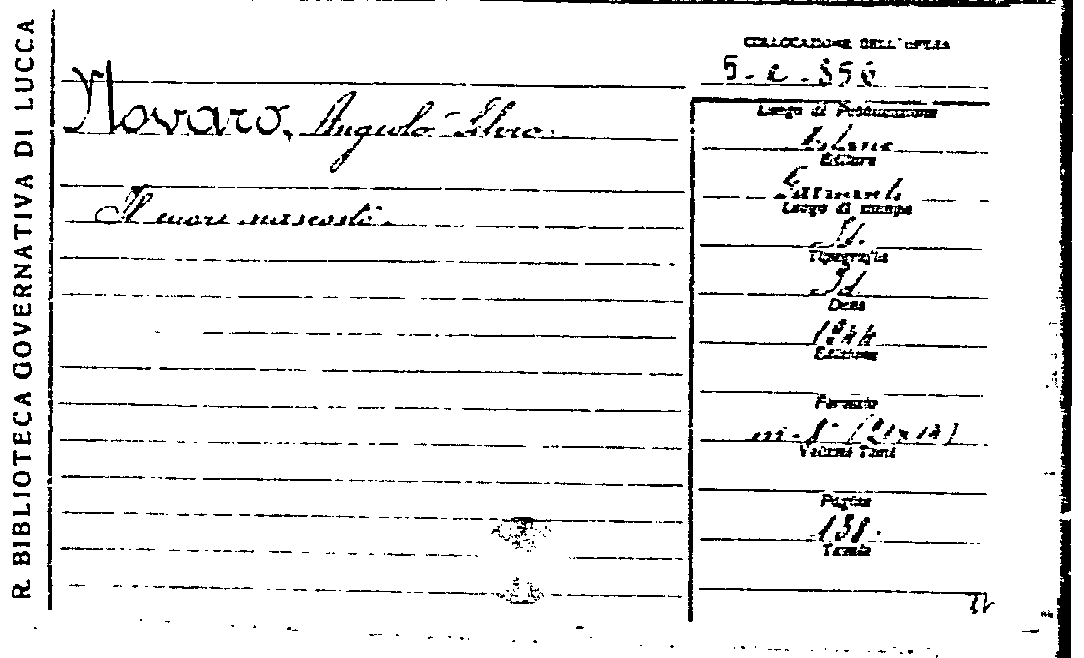 R. BIBLIOTECA GOVERNATIVA DI LUCCA
COLLOCAZIONE DELL'OPERA
5-2-856
Novaro, Angiolo Silvio.
Il cuore nascosto.
Luogo di Pubblicazione
Milano
Editore
Luogo di stampa
Id.
Tipografia
Id
Data
Edizione
Formato
in-8°
Volumi Tomi
Pagine
138.
Tavole